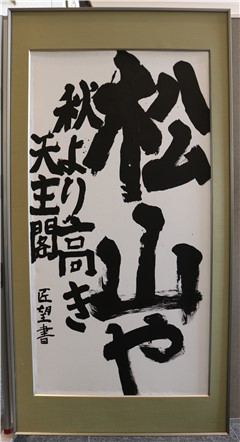 松山や
秋より高き
天主閣
匠望書